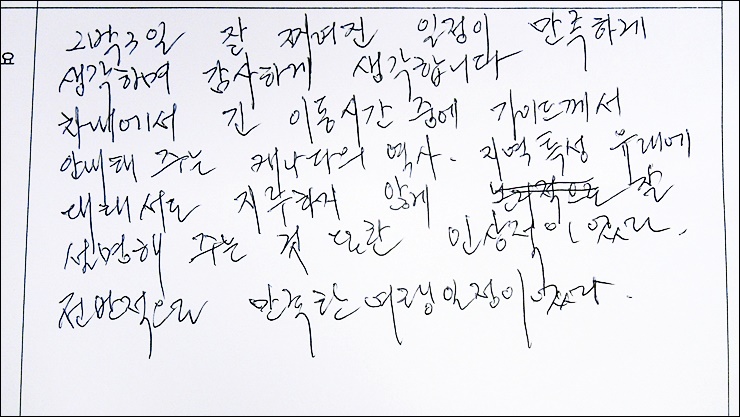 2박3일 잘 짜여진 일정이 만족하게
생각하며 감사하게 생각합니다
차내에서 긴 이동시간 중에 가이드께서
안내해 주는 캐나다의 역사. 지역특성 유래에
대해서도 지루하지 않게 잘
설명해 주는 것 또한 인상적이었다.
전반적으로 만족한 여행일정이었다.
요